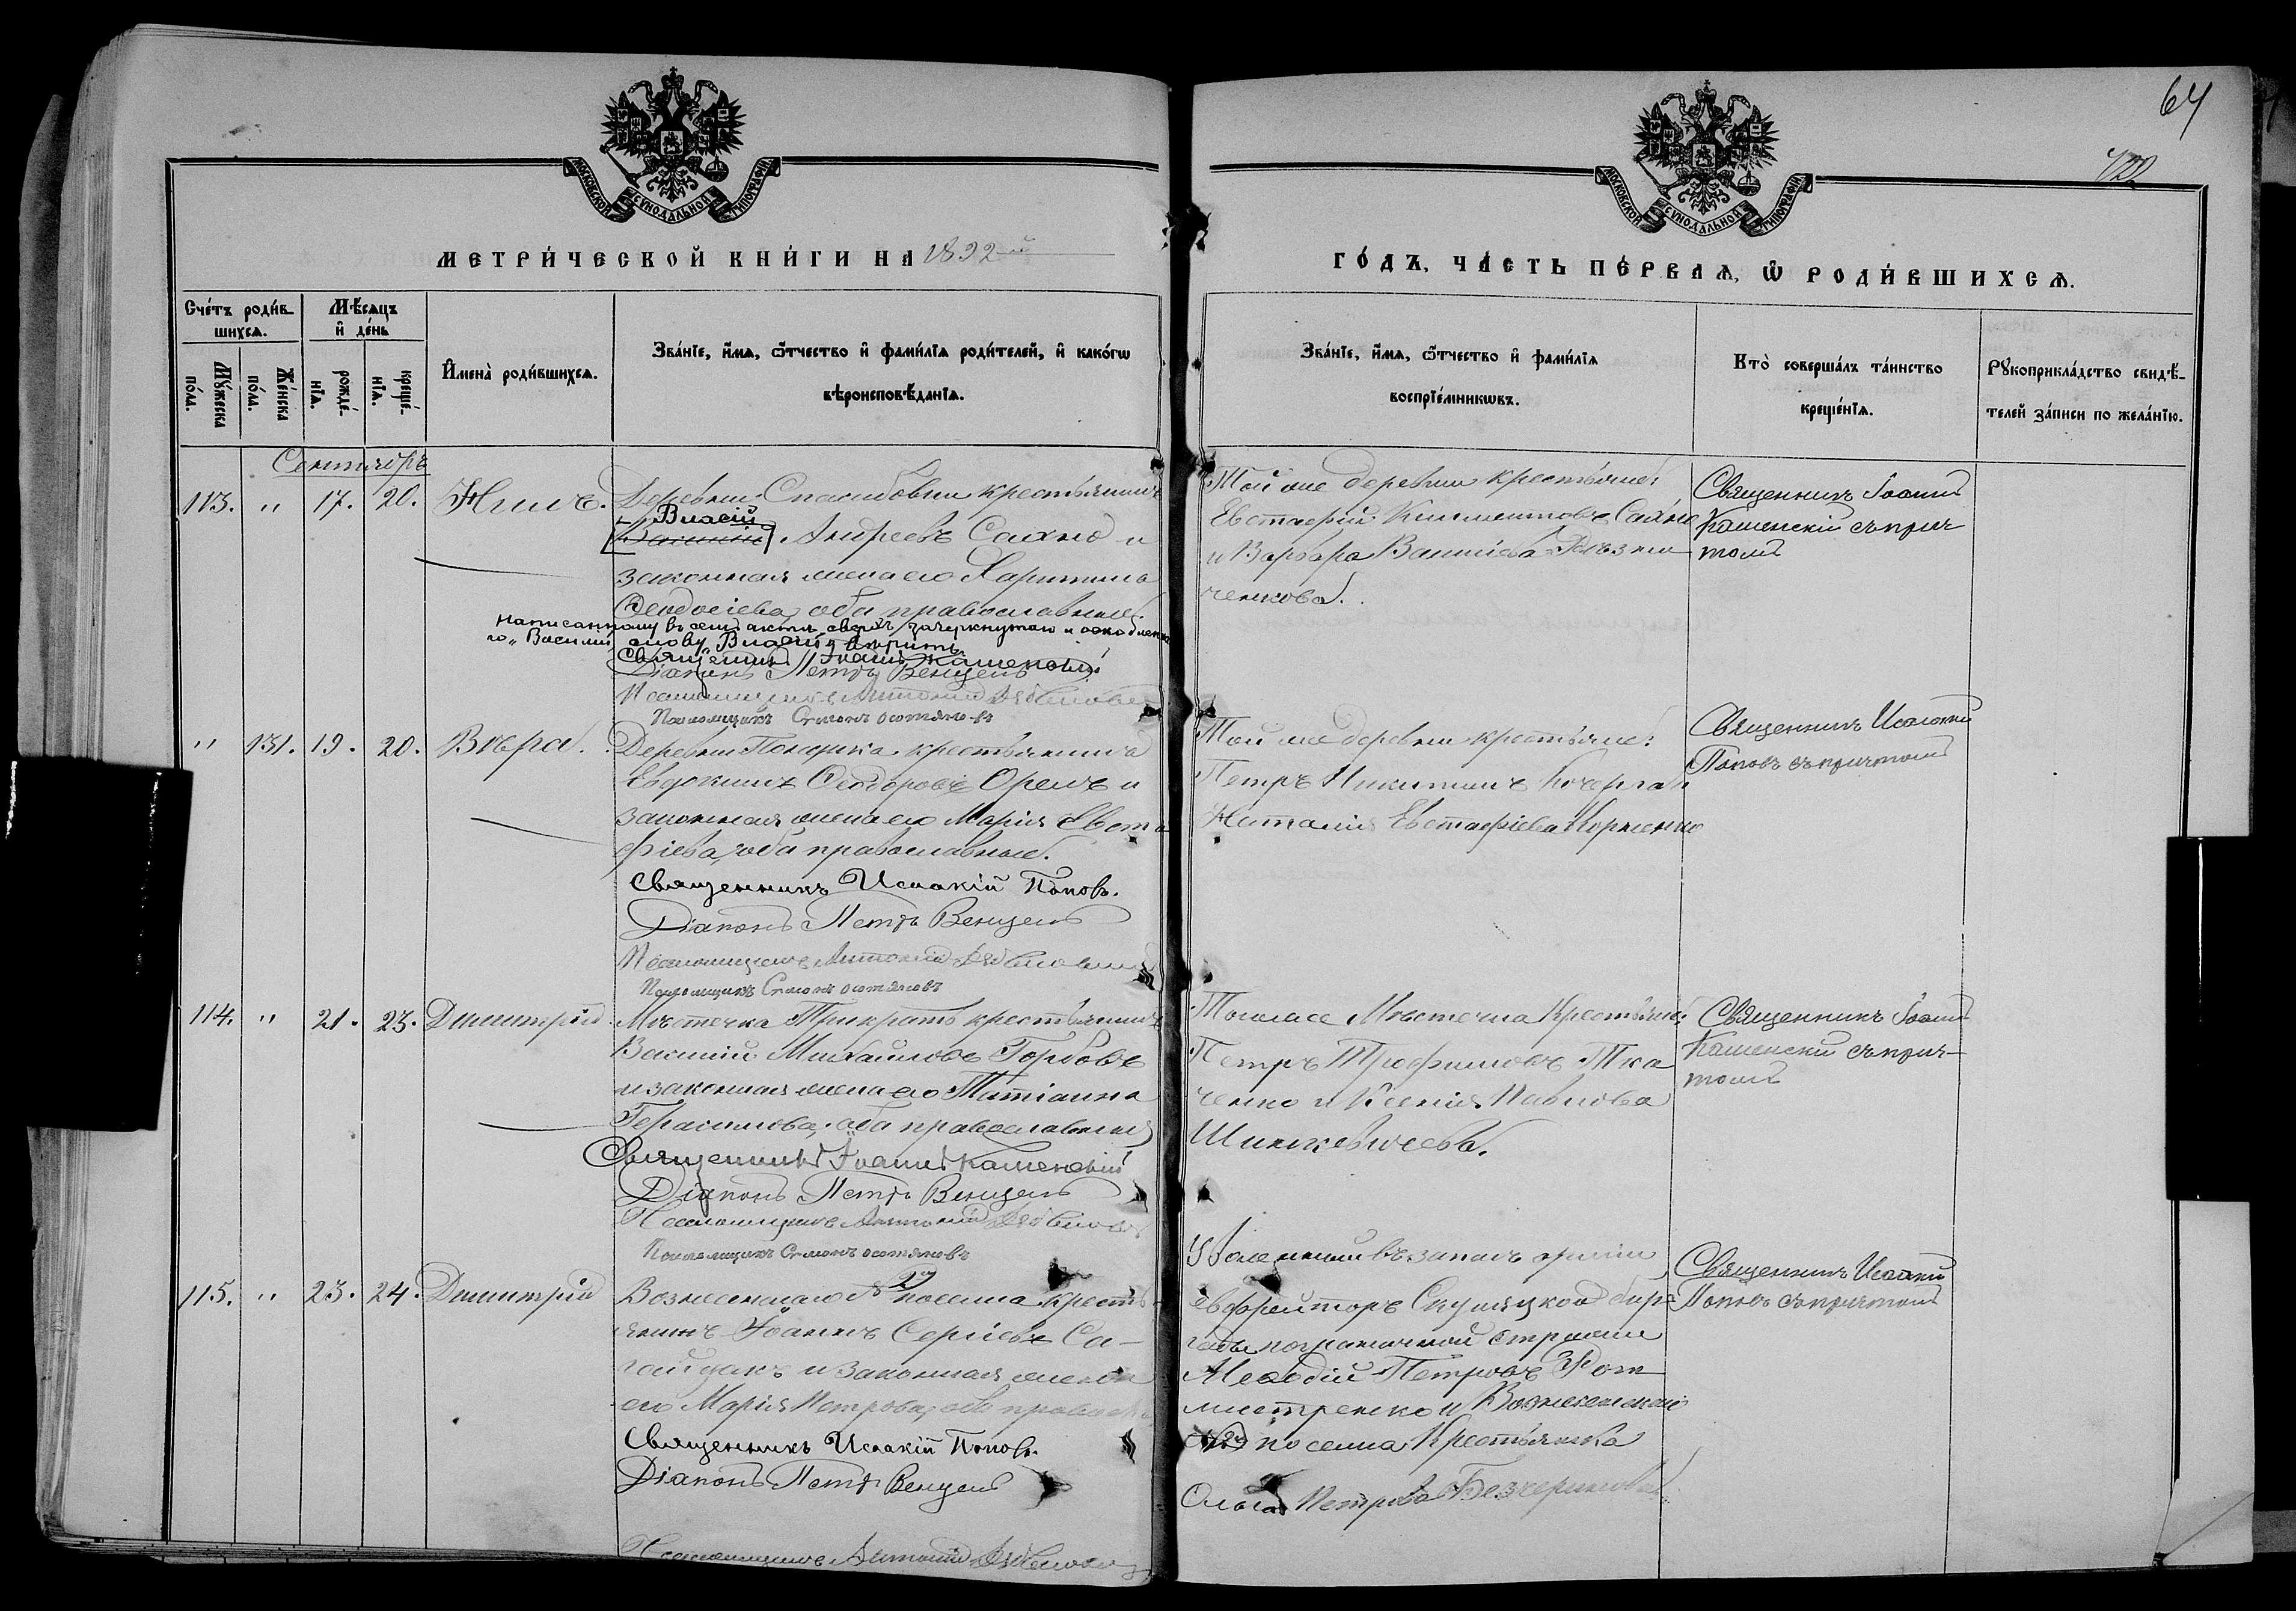 64
122
МОСКОВСКОЙ СѴНОДАЛЬНОЙ ТИПОГРАФІИ
МОСКОВСКОЙ СѴНОДАЛЬНОЙ ТИПОГРАФІИ
МЕТРИ́ЧЕСКОЙ КНИ́ГИ НА 1892 й
ГО́ДЪ, ЧА́СТЬ ПЕ́РВАѦ, Ѡ҆ РОДИ́ВШИХСѦ.
Сче́тъ роди́в-
шихсѧ.
Мѣ́сѧцъ
и҆ де́нь
Мꙋ́жеска
по́ла.
Же́нска
по́ла.
рожде́-
нїѧ.
креще́-
нїѧ.
И҆мена̀ роди́вшихсѧ.
Зва́нїе, и҆́мѧ, ѻ҆́тчество и҆ фами́лїѧ роди́телей, и҆ како́гѡ
вѣроисповѣ́данїѧ.
Зва́нїе, и҆́мѧ, ѻ҆́тчество и҆ фами́лїѧ
воспрїе́мникѡвъ.
Кто̀ соверша́лъ та́инство
креще́нїѧ.
Рꙋкоприкла́дство свидѣ́-
телей за́писи по жела́нїю.
Сентябрь
113. " 17. 20. Нилъ. Деревни Спасибовки крестьянинъ
Власій
Андреевъ Сахно и
законная жена его Харитина
Ѳеодосіева, оба православные.
Написанному въ семъ актѣ сверхъ зачеркнутаго и оскобленна
го „Василій" слову „Власій" вѣрить.
Священникъ Іоаннъ Каменскій
Діаконъ Петръ Венцель
Псаломщикъ Антоній
Псаломщикъ Симонъ Остяковъ
Той же деревни крестьяне:
Евстафій Климентовъ Сахно
и Варвара Ваниіева
ченкова.
Священникъ Іоаннъ
Каменскій съ прич
томъ
" 131. 19. 20. Вѣра. Деревни крестьянинъ
Евдокимъ Ѳеодоровъ Орелъ и
законная жена его Марія Евста
фіева, оба православные.
Священникъ Исаакій Поповъ.
Діаконъ Петръ Венцель
Псаломщикъ Антоній
Псаломщикъ Симонъ Остяковъ
Той же деревни крестьяне:
Петръ Никитинъ Кочерга и
Наталія Евстафіева Корниенко
Священникъ Исаакій
Поповъ съ причтомъ
114. " 21. 23. Димитрій Мѣстечка Трикратъ крестьянинъ
Василій Михайловъ Горбовъ
и законная жена его Татіанна
Герасимова, оба православные
Священникъ Іоаннъ Каменскій
Діаконъ Петръ Венцель
Псаломщикъ Антоній
Псаломщикъ Симонъ Остяковъ
Тогоже Мѣстечка Крестьяне:
Петръ Трофимовъ Тка
ченко и Ксенія Павлова
Шинкевичева.
Священникъ Іоаннъ
Каменскій съ прич-
томъ
115. " 23. 24. Димитрій Вознесенскаго № 2й поселка кресть
янинъ Іоаннъ Сергіевъ Са-
гайдакъ и законная жена
его Марія Петрова, оба правосл.
Священникъ Исаакій Поповъ.
Діаконъ Петръ Венцель
Псаломщикъ Антоній
Уволенный въ запасъ арміи
ефрейторъ Скулянской бри
гады пограничной стражи
Меѳодій Петровъ Рот
мистренко и Вознесенскаго
№ 2й поселка Крестьянка
Ольга Петрова
Священникъ Исаакій
Поповъ съ причтомъ